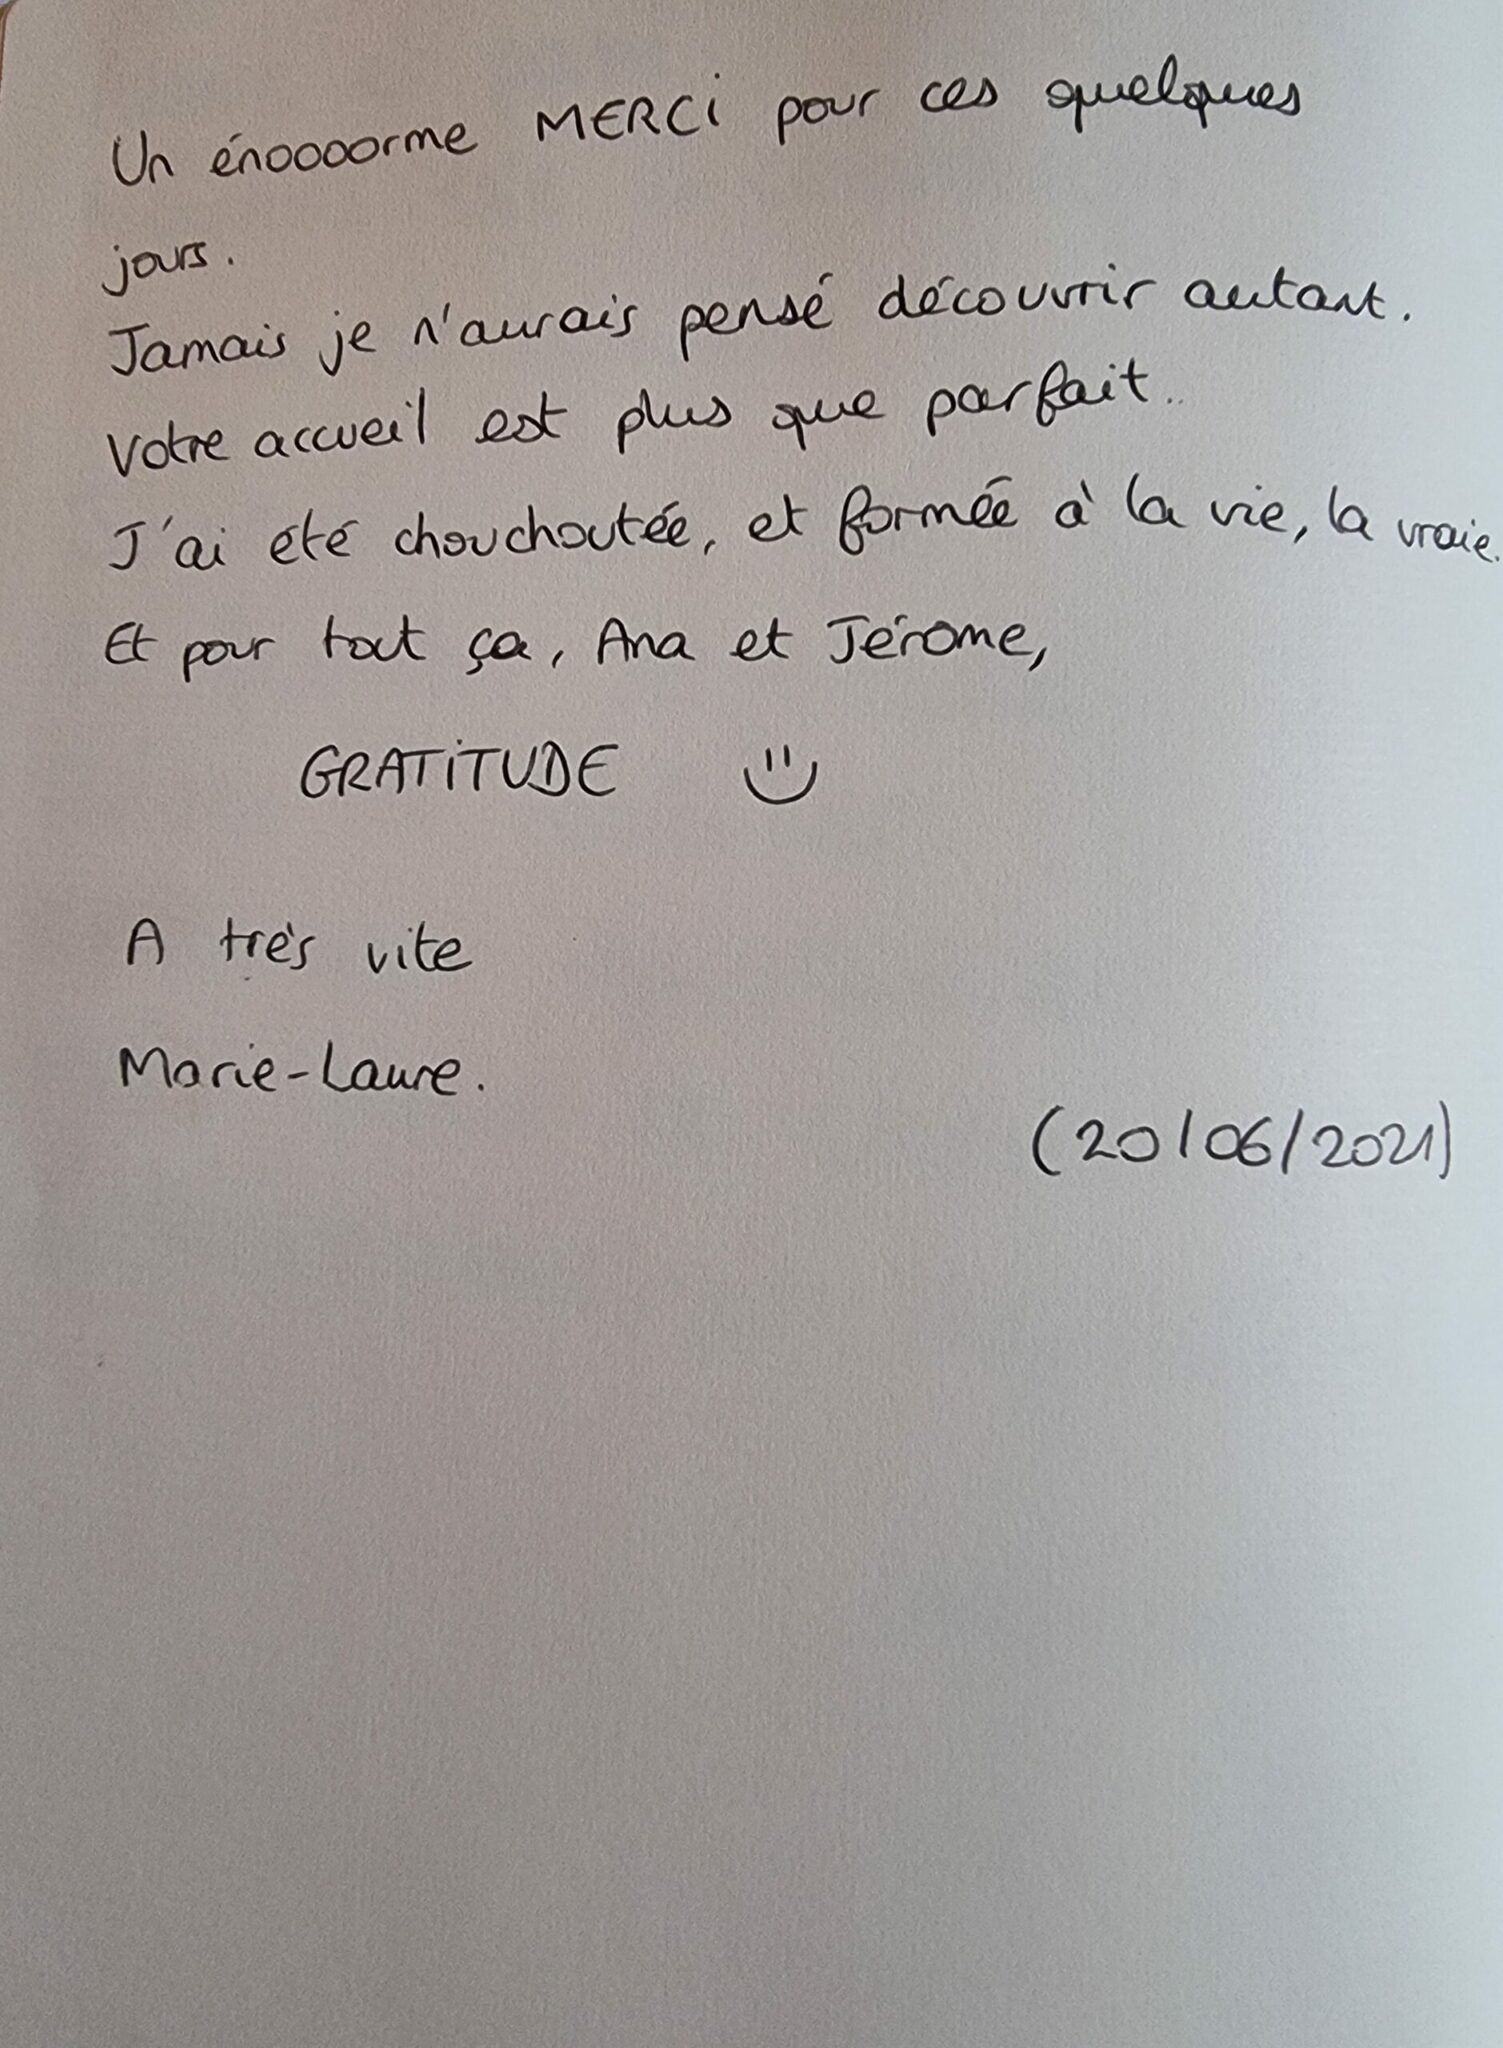 Un énoooorme MERCi pour ces quelques
jours.
Jamais je n'aurais pensé découvrir autant.
Votre accueil est plus que parfait..
J'ai été chouchoutée, et formée à la vie, la vraie.
Et pour tout ça, Ana et Jérome,
GRATiTUDE
A très vite
Marie-Laure.
(20/06/2021)